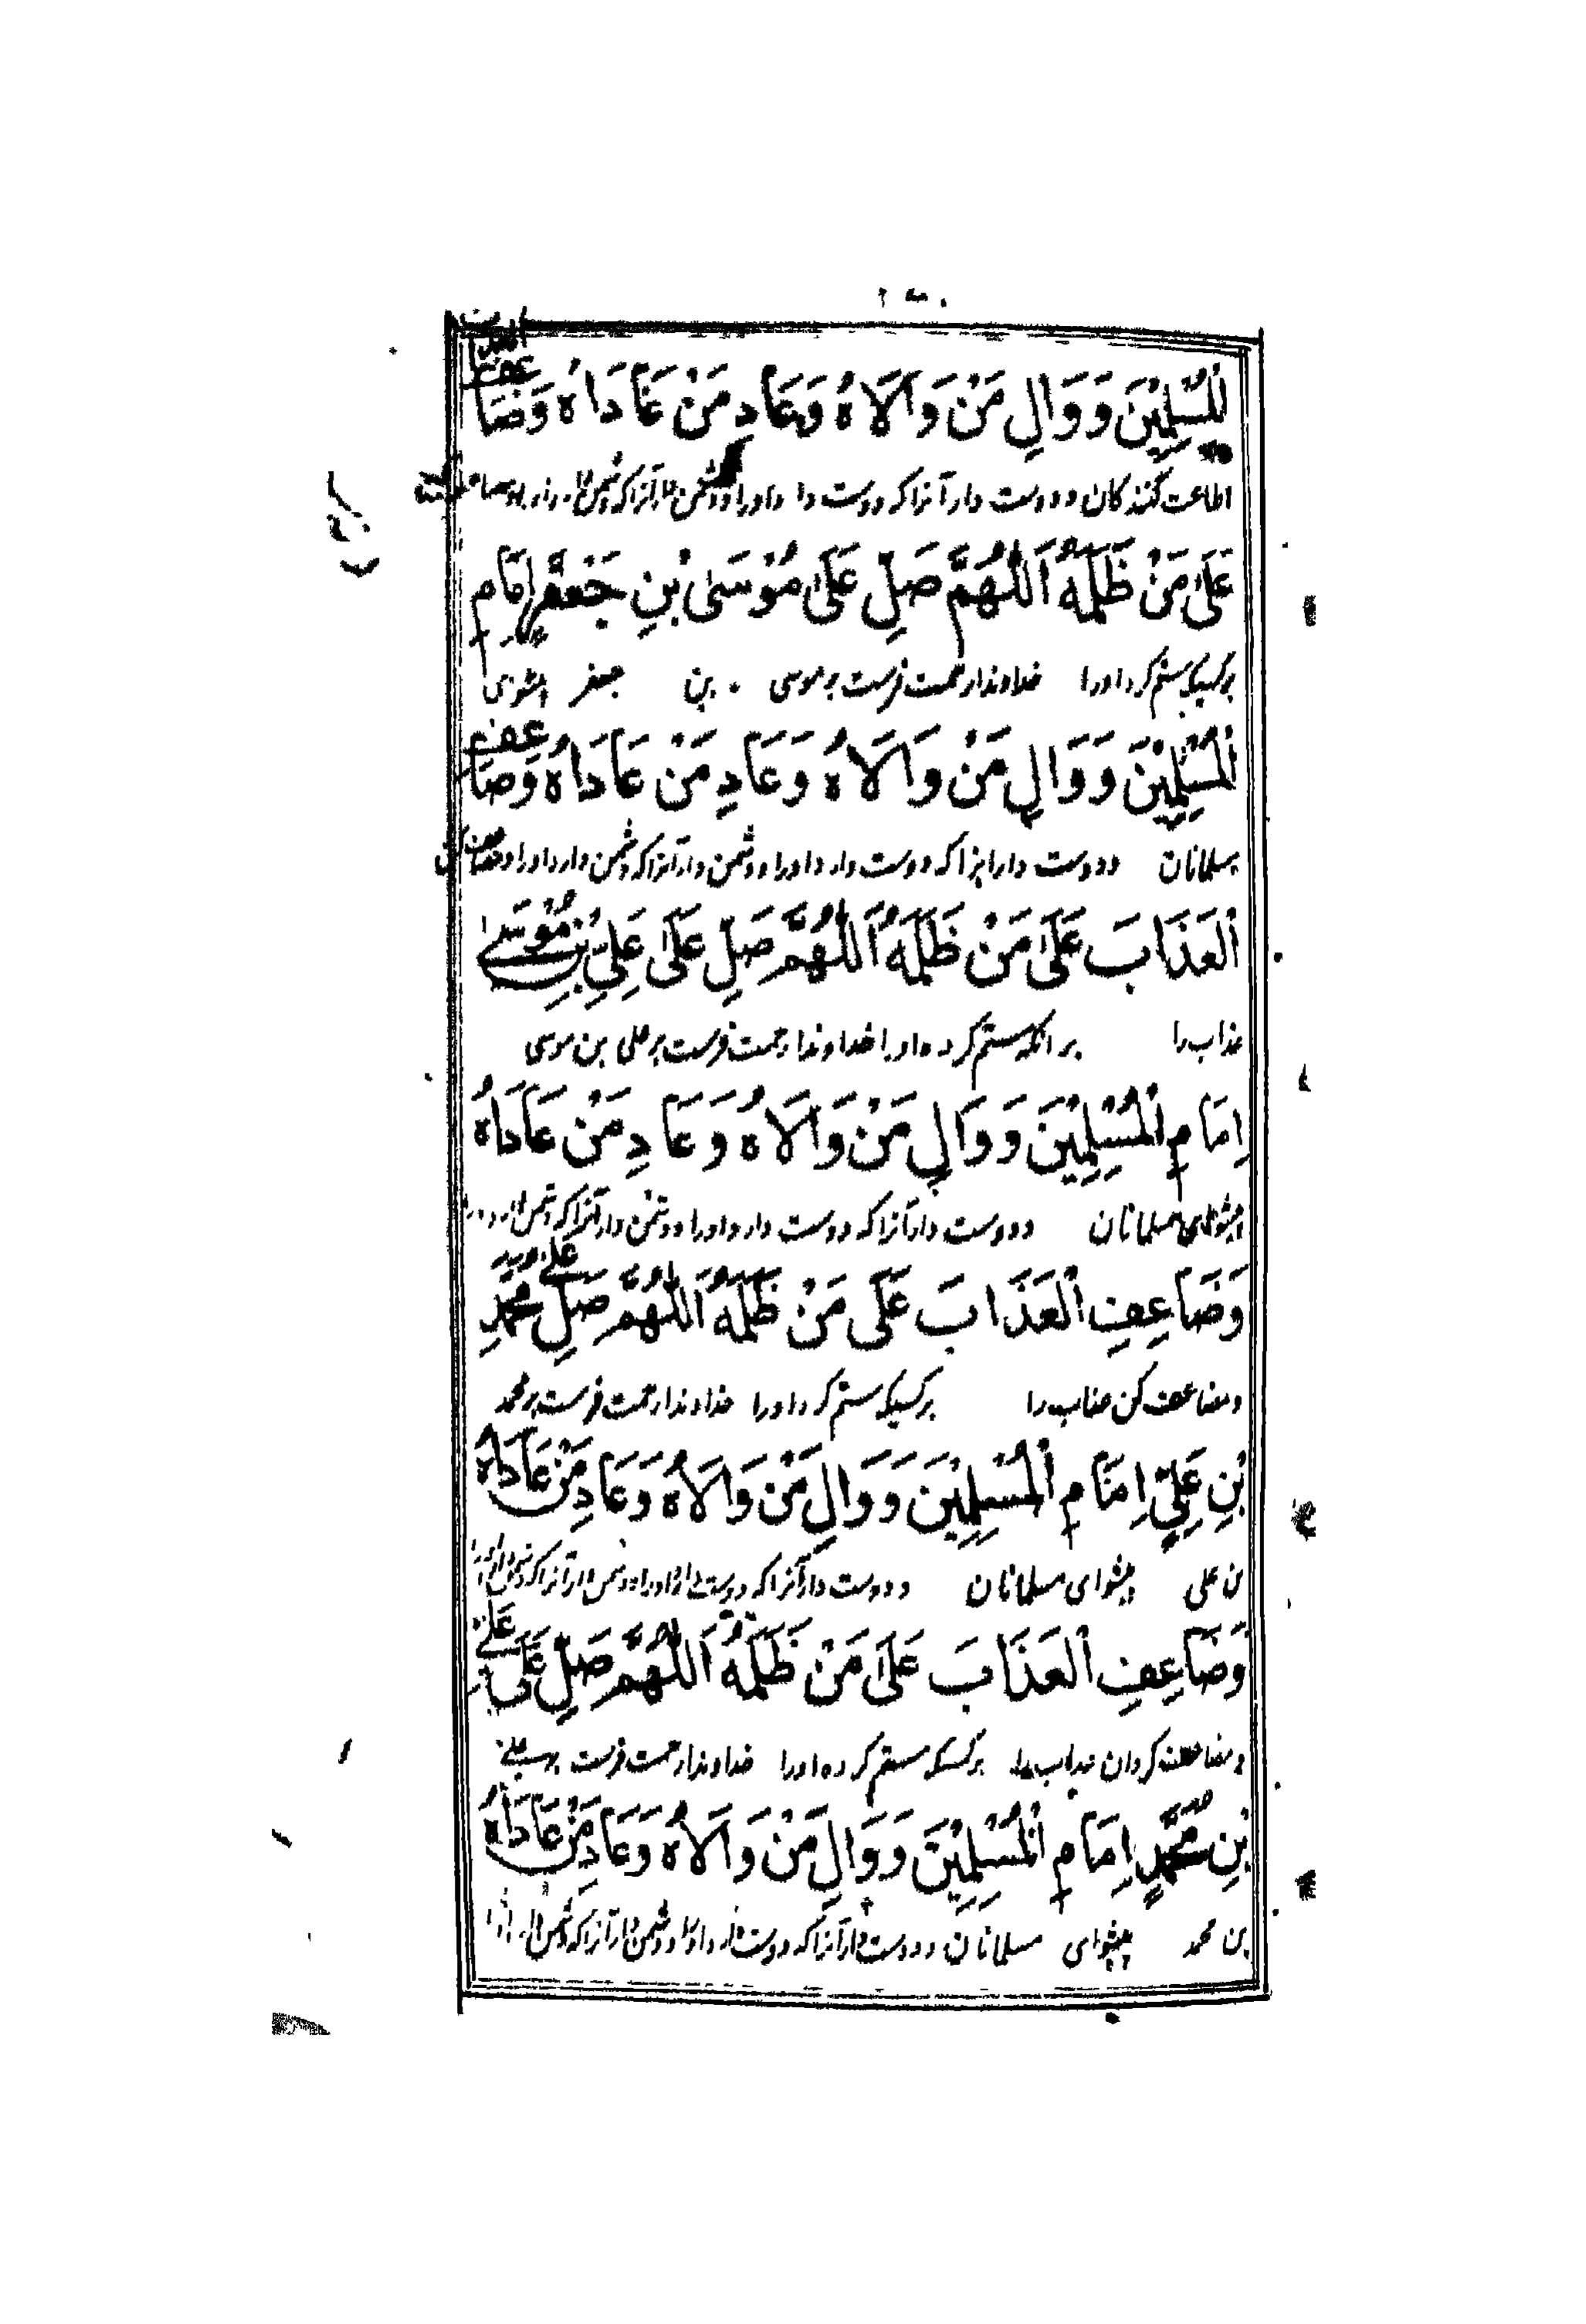 الْمُسْلِمِيْنَ وَوَالِ مَنْ وَالَاهُ وَعَادِ مَنْ عَادَاهُ وَضَاعِفِ الْعَذَابَ
اطاعت کنندکان و دوست دار آنرا که دوست دا
عَلَىٰ مَنْ ظَلَمَهُ اَللّٰهُمَّ صَلِّ عَلَىٰ مُوْسَىٰ بْنِ جَعْفَرٍ اِمَامِ
بر کسیکه ستم کرد اورا خداوندا رحمت فرست بر موسی بن جعفر پیشوای
الْمُسْلِمِيْنَ وَوَالِ مَنْ وَالَاهُ وَعَادِ مَنْ عَادَاهُ وَضَاعِفِ
مسلمانان و دوست دار آنرا که دوست دارد اورا و دشمن دار آنرا که دشمن دارد اورا
الْعَذَابَ عَلَىٰ مَنْ ظَلَمَهُ اَللّٰهُمَّ صَلِّ عَلَىٰ عَلِيِّ بْنِ مُوْسَىٰ
عذاب را بر آنکه ستم کرده اورا خداوندا رحمت فرست بر علی بن موسی
اِمَامِ الْمُسْلِمِيْنَ وَوَالِ مَنْ وَالَاهُ وَعَادِ مَنْ عَادَاهُ
پیشوای مسلمانان و دوست دار آنرا که دوست دارد اورا و دشمن دار آنرا که دشمن
وَضَاعِفِ الْعَذَابَ عَلَىٰ مَنْ ظَلَمَهُ اَللّٰهُمَّ صَلِّ عَلىٰ مُحَمَّدِ
و مضاعف کن عذاب را بر کسیکه ستم کرد اورا خداوندا رحمت فرست بر محمد
بْنِ عَلِيٍّ اِمَامِ الْمُسْلِمِيْنَ وَوَالِ مَنْ وَالَاهُ وَعَادِ مَنْ عَادَاهُ
بن علی پیشوای مسلمانان و دوست دار آنرا که
وَضَاعِفِ الْعَذَابَ عَلَىٰ مَنْ ظَلَمَهُ اَللّٰهُمَّ صَلِّ عَلَىٰ عَلِيِّ
و مضاعف کردان عذاب را بر کسیکه ستم کرده اورا خداوندا رحمت فرست بر علی
بْنِ مُحَمَّدٍ اِمَامِ الْمُسْلِمِيْنَ وَوَالِ مَنْ وَالَاهُ وَعَادِ مَنْ عَادَاهُ
بن محمد پیشوای مسلمانان و دوست دار آنرا که دوست دارد اورا و دشمن دار آنرا که دشمن